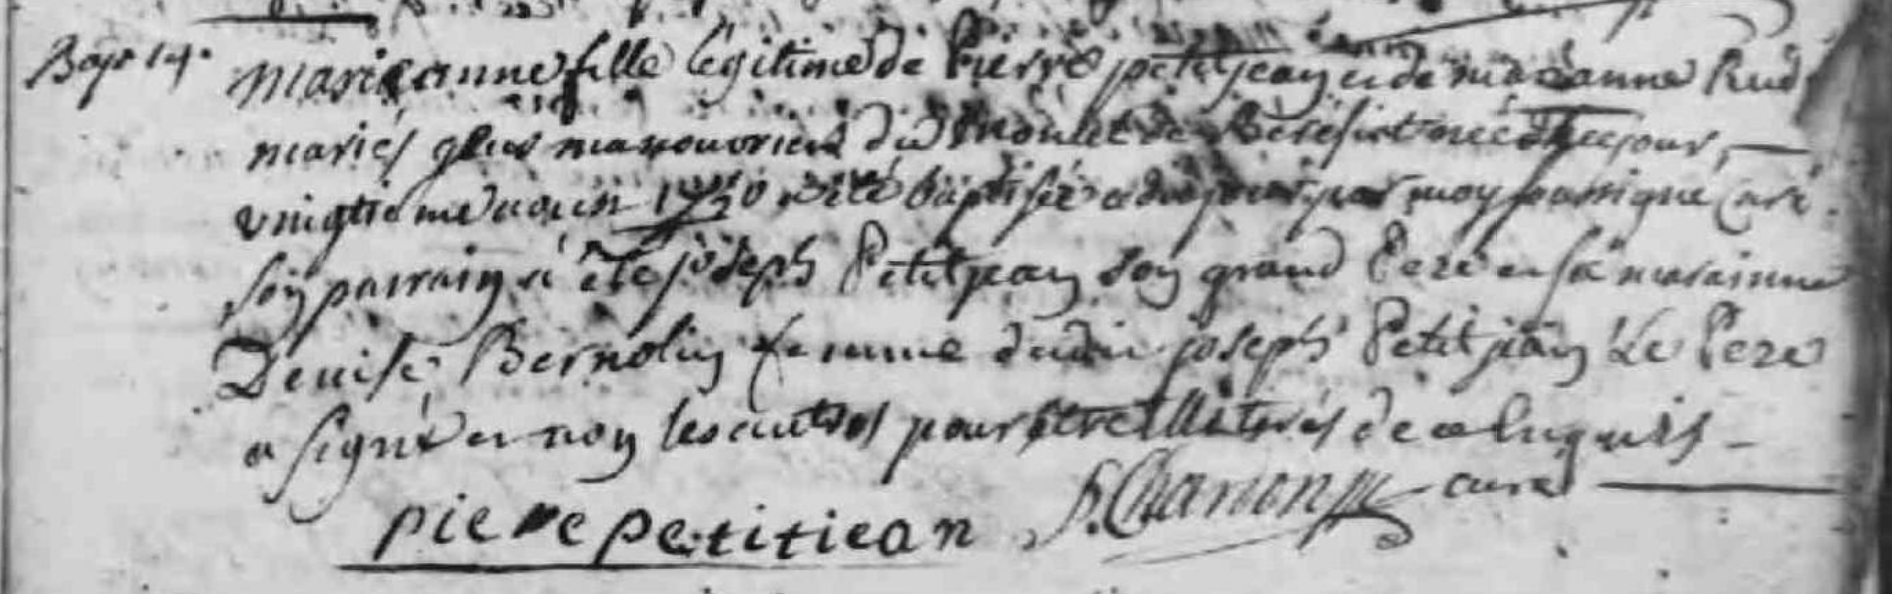 Bapt 14.
marieanne fille légitime de Pierre petitjean et de marianne Rud
mariés manouvriers du jour,
vingtième 1730 a été baptisée cedit jour par moy soussigné Curé
son parrain a été joseph Petitjean son grand Pere et sa maraine
Denise Bernolin femme dudit joseph Petitjean Le Pere
a signé et non les autres pour être illiterés de ce enquis
pierre petitiean S. Chanon curé